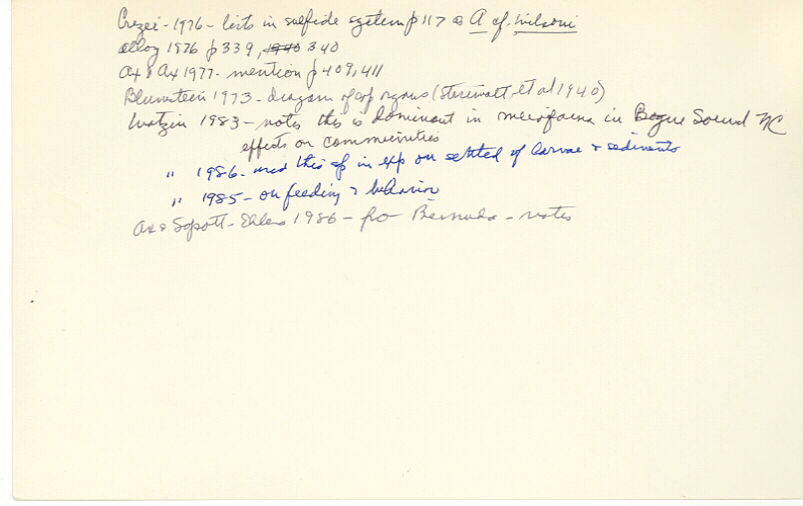 Crezee - 1976 - lists in sulfide system p 117 as A cf. wilsoni
1976 p 339, 1940 340
Ax & Ax 1977 - mention p 409, 411
1973 - diagram of cop organs (Steinmatt et al 1940)
Watzin 1983 - notes this is dominant in meiofauna in Bogue Sound NC
effects on communities
" 1986 - used this sp in exp on settled of larvae & sediments
" 1985 - on feeding & behavior
Ax & Sopott-Ehlers 1986 - fro Bermuda - notes